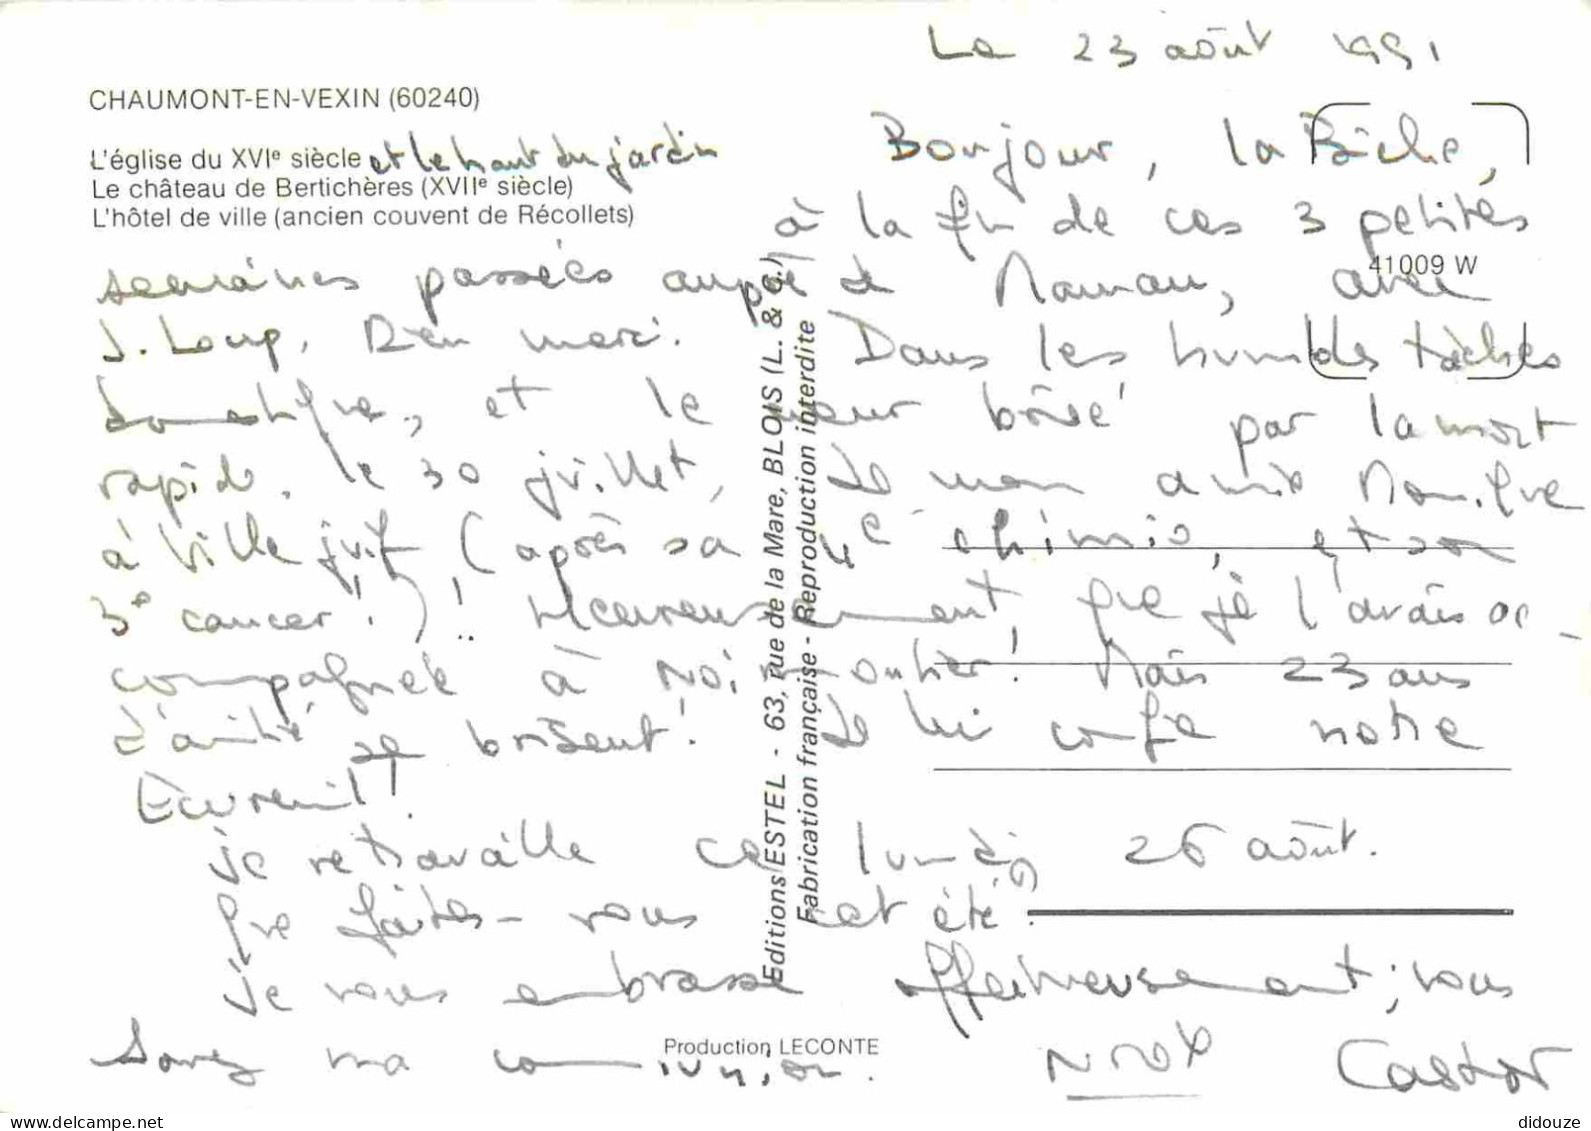 Le 23 août 1991
CHAUMONT-EN-VEXIN (60240)
L'église du XVIe siècle et le haut du jardin
Le château de Bertichères (XVIIe siècle)
L'hôtel de ville (ancien couvent de Récollets)
41009 W
Bonjour, la Biche,
à la fin de ces 3 petites
semaines passées auprès de Maman, avec
J. Loup, Bien merci. Dans les humbles tâches
domestique, et le cœur brisé par la mort
rapide, le 30 juillet, de mon amie Monique
à Villejuif (après sa 4e chimio, et son
3e cancer !) ! Heureusement, que je l'avais ac-
compagnée à Noirmoutier ! Mais 23 ans
d'amitié se brisent ! Je lui confie notre
Ecureuil !
Je retravaille ce lundi 26 août.
Que faites-vous cet été ?
Je vous embrasse affectueusement ; vous
savez ma communion. Castor
Editions ESTEL - 63, rue de la Mare, BLOIS (L. & C.)
Fabrication française - Reproduction interdite
Production LECONTE
didouze